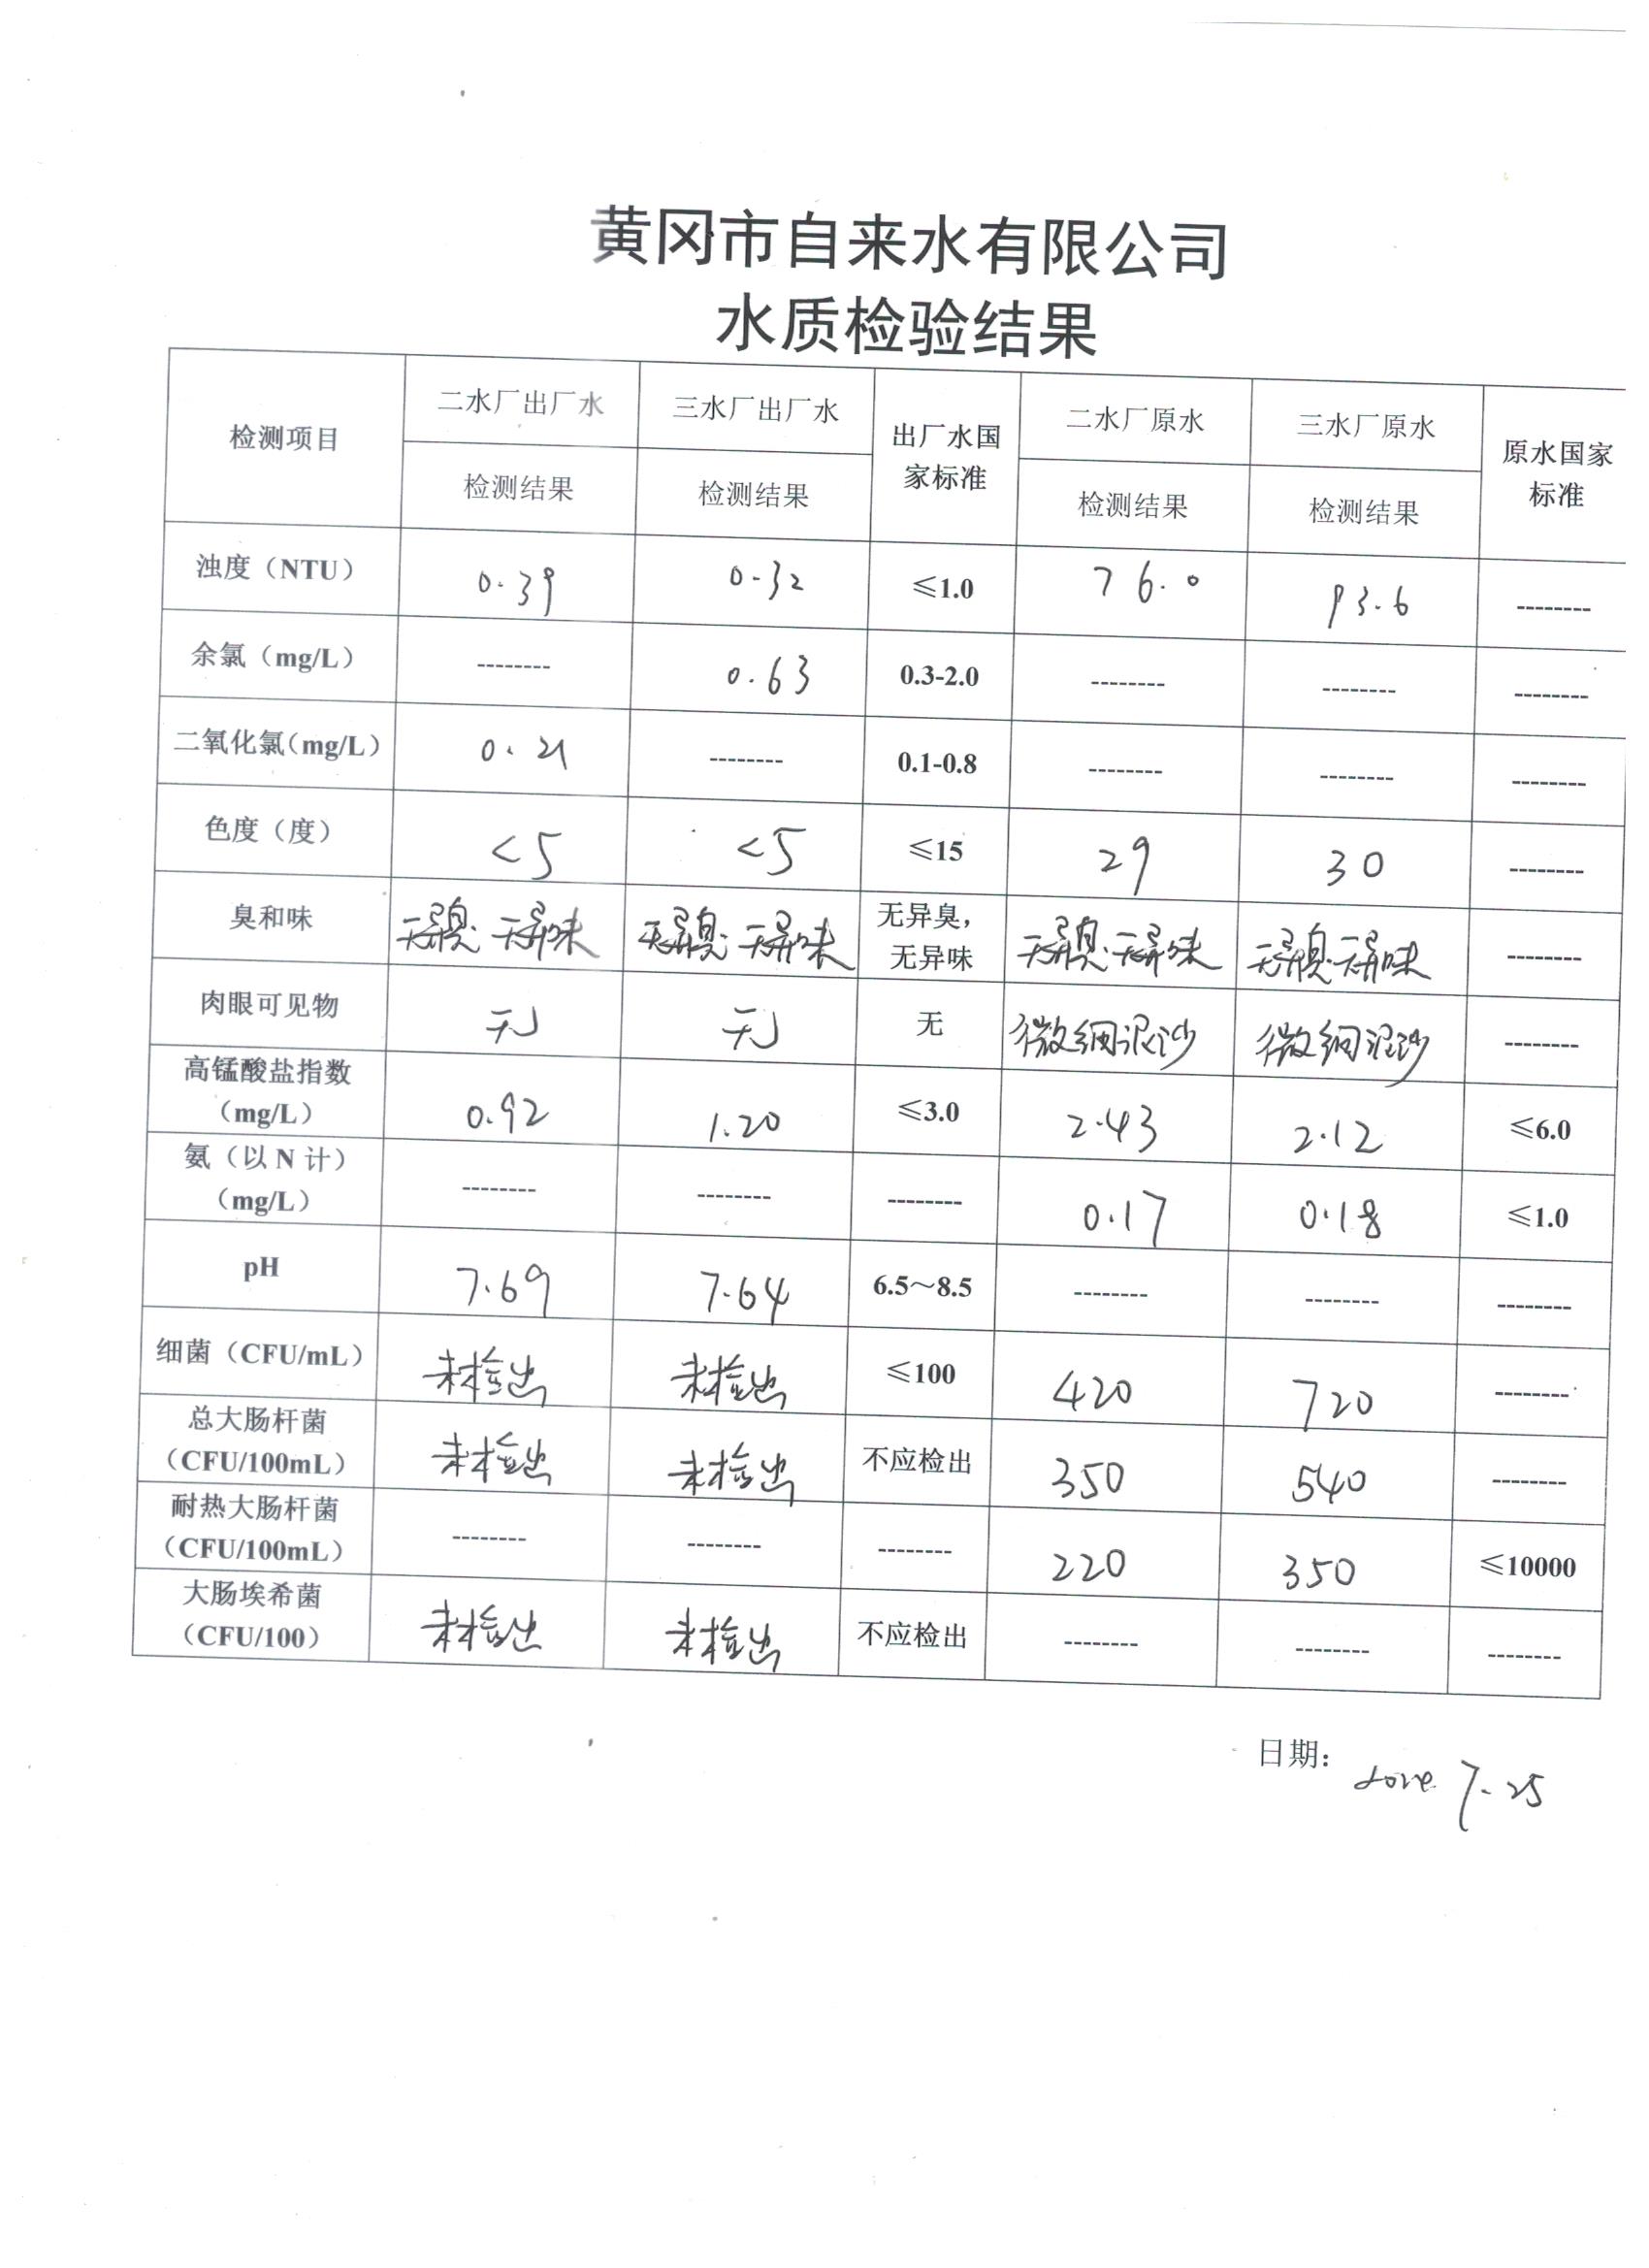 黄冈市自来水有限公司
水质检验结果
检测项目 二水厂出厂水 三水厂出厂水 出厂水国家标准 二水厂原水 三水厂原水 原水国家标准
检测结果 检测结果 检测结果 检测结果
浊度（NTU） 0.39 0.32 ≤1.0 76.0 93.6 --------
余氯（mg/L） -------- 0.63 0.3-2.0 -------- -------- --------
二氧化氯（mg/L） 0.21 -------- 0.1-0.8 -------- -------- --------
色度（度） <5 <5 ≤15 29 30 --------
臭和味 无异臭.无异味 无异臭.无异味 无异臭，无异味 无异臭.无异味 无异臭.无异味 --------
肉眼可见物 无 无 无 微细泥沙 微细泥沙 --------
高锰酸盐指数（mg/L） 0.92 1.20 ≤3.0 2.43 2.12 ≤6.0
氨（以 N 计）（mg/L） -------- -------- -------- 0.17 0.18 ≤1.0
pH 7.69 7.64 6.5～8.5 -------- -------- --------
细菌（CFU/mL） 未检出 未检出 ≤100 420 720 --------
总大肠杆菌（CFU/100mL） 未检出 未检出 不应检出 350 540 --------
耐热大肠杆菌（CFU/100mL） -------- -------- -------- 220 350 ≤10000
大肠埃希菌（CFU/100） 未检出 未检出 不应检出 -------- -------- --------
日期： 7.25